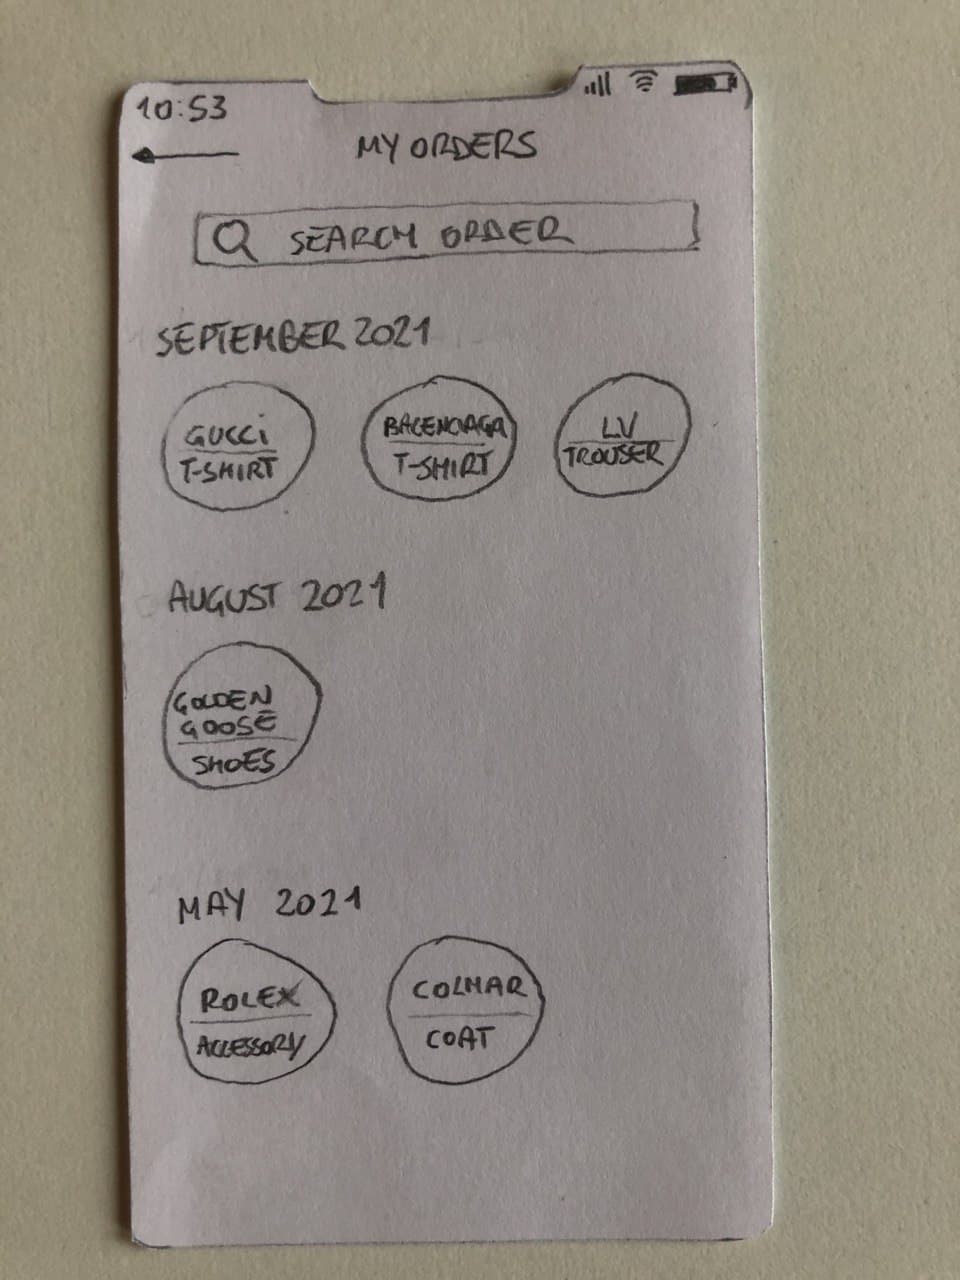 10:53
MY ORDERS
SEARCH ORDER
SEPTEMBER 2021
GUCCi
T-SHIRT
BALENCIAGA
T-SHIRT
LV
TROUSER
AUGUST 2021
GOLDEN
GOOSE
SHOES
MAY 2021
ROLEX
ACCESSORY
COLMAR
COAT